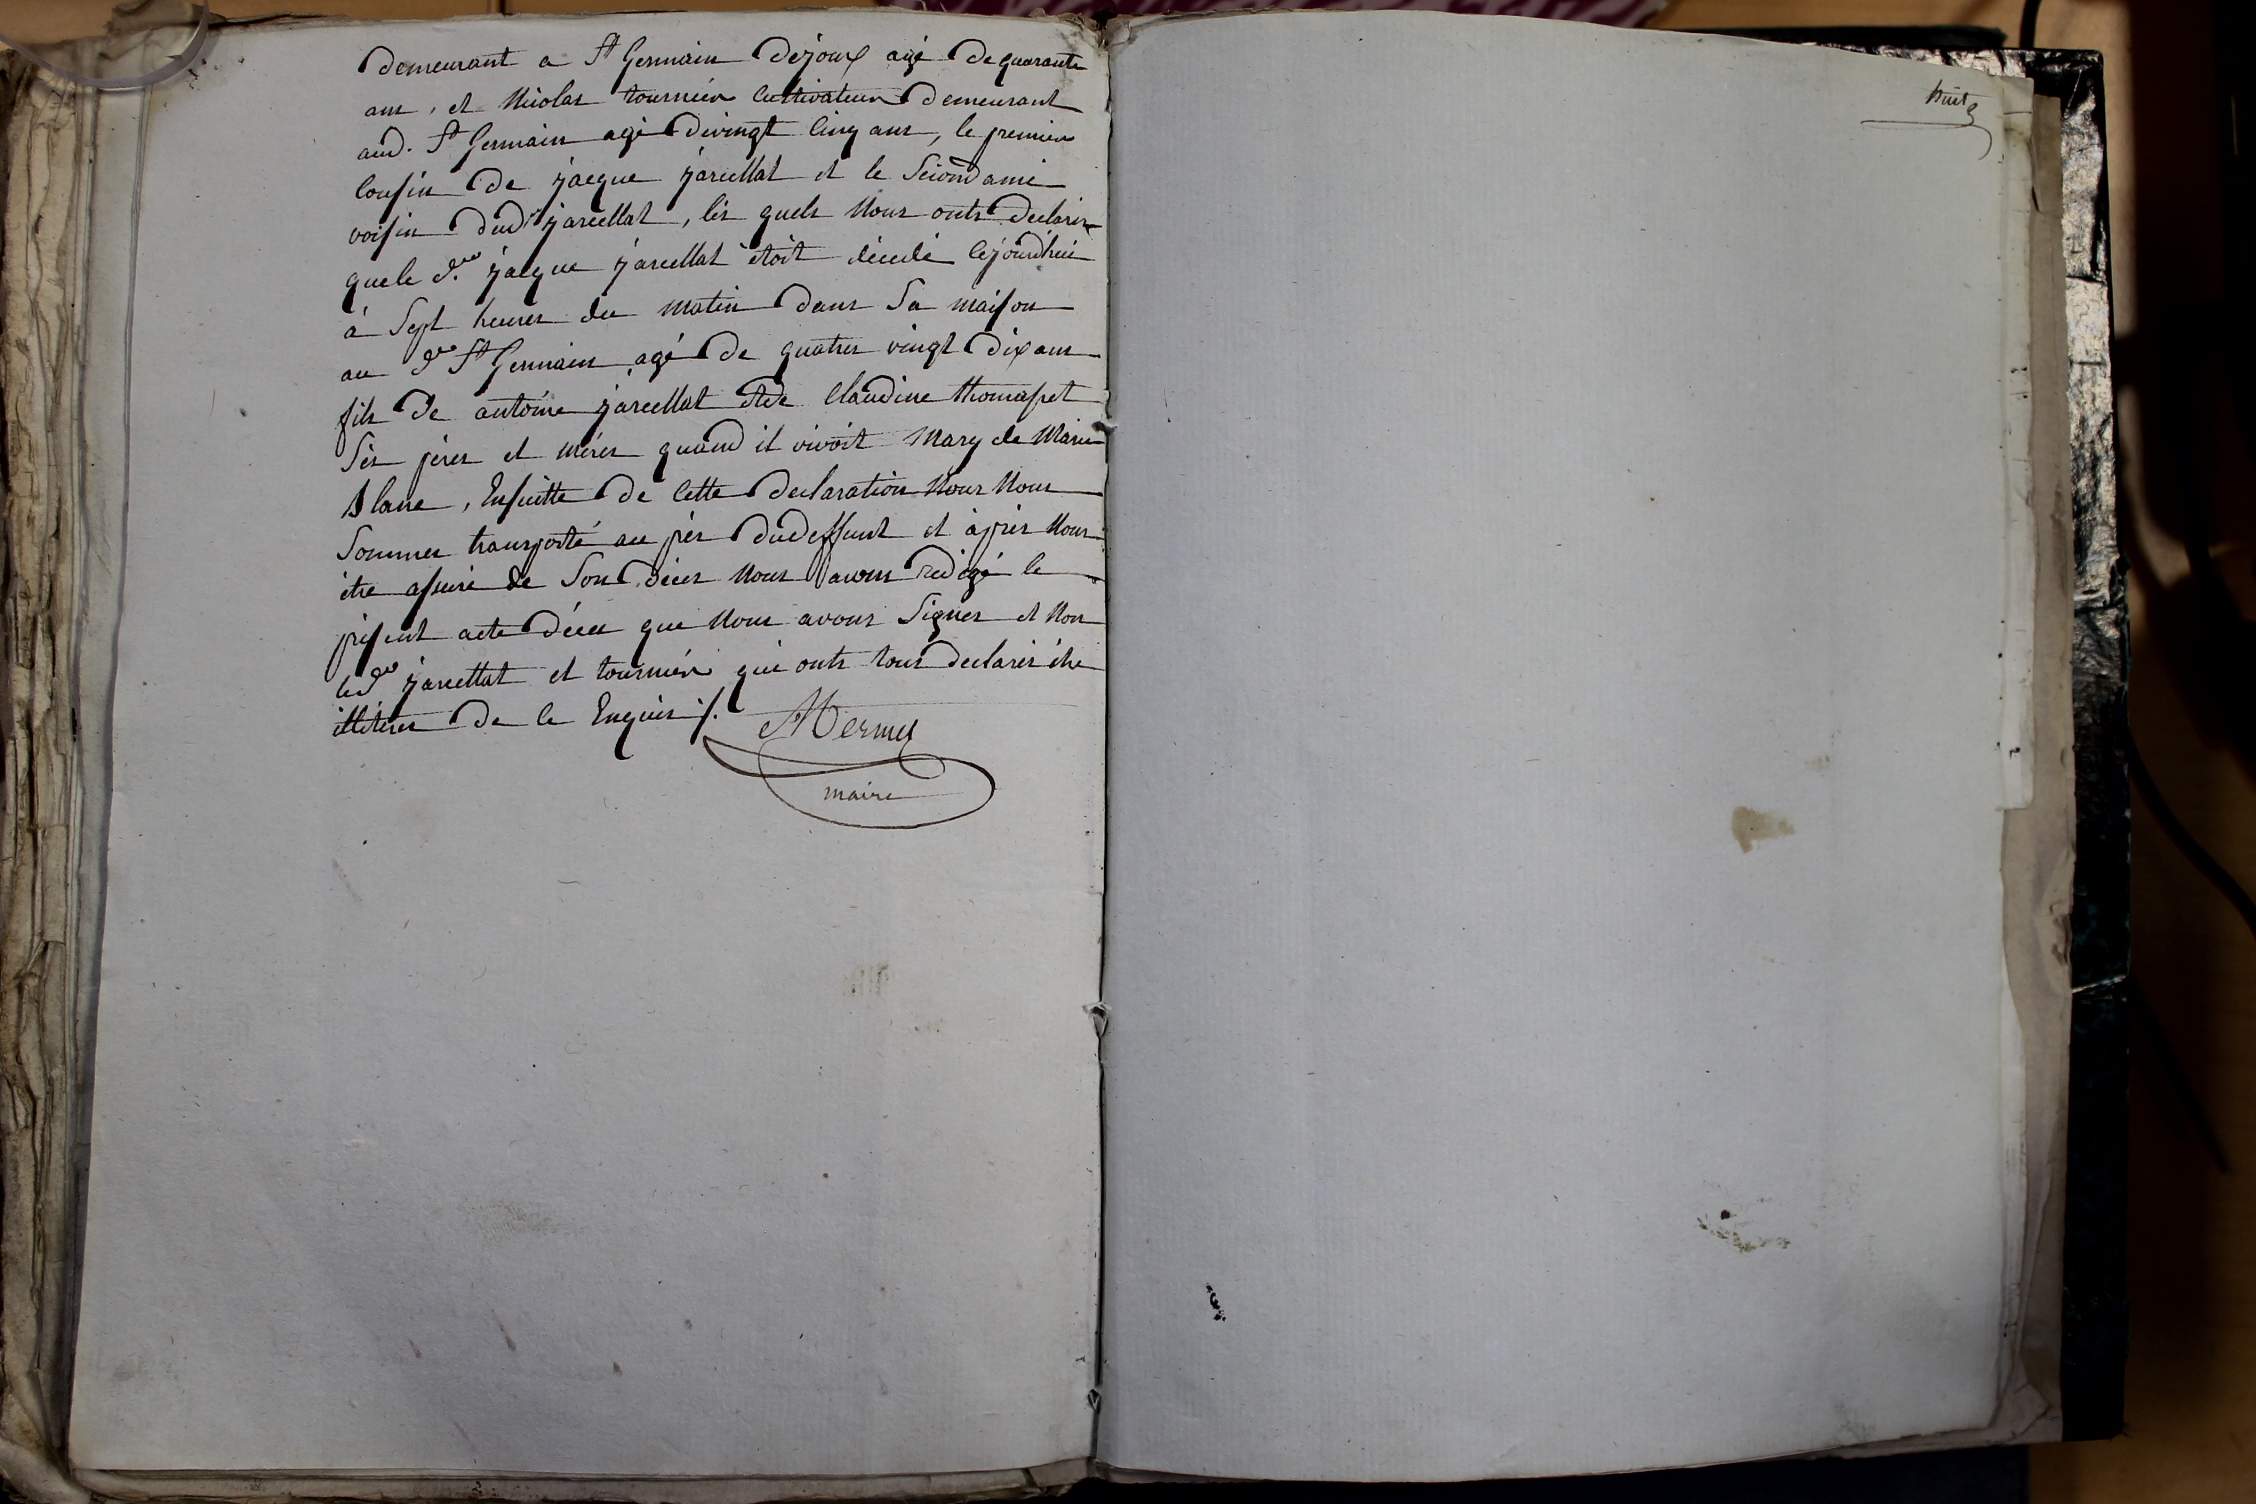 demeurant a St Germain dejoux agé de quarante
ans, et Nicolas tournier Cultivateur demeurant
aud. St Germain agé de vingt Cinq ans, le premier
Cousin de jacque jarcellat et le Second ami
voisin dud jarcellat, les quels Nous onts declarer
que le d. jacque jarcellat étoit décedé Cejourd'hui
à Sept heures du matin dans Sa maison
au d. St Germain agé de quatres vingt dix ans
fils de antoine jarcellat et de Claudine thomasset
Ses peres et méres quand il vivoit Mary de Marie
Blanc, Ensuitte de Cette declaration Nous Nous
Sommes transporté au prés dudeffunt et àprés Nous
étre assuré de Son décés Nous avons redigé le
présent acte décés que Nous avons Signer et Non
led. jarcellat et tournier qui onts tous declarés étre
illiteres de ce Enquis ./.
Mermet
maire
huit